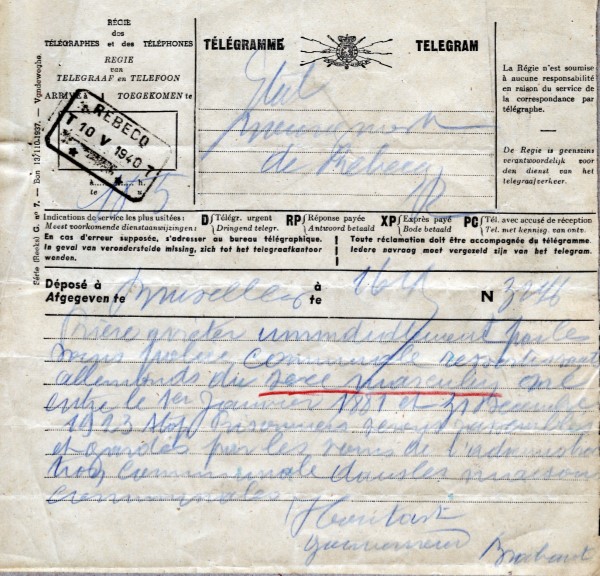 RÉGIE
des
TÉLÉGRAPHES et des TÉLÉPHONES
REGIE
van
TELEGRAAF en TELEFOON
ARRIVÉ à TOEGEKOMEN te
REBECQ
T 10 V 1940 T
à.......h.
te u.
Série (Reeks) G. n° 7. — Bon 13/110/1937. — Vandeweghe.
TÉLÉGRAMME TELEGRAM
Etat
de Rebecq
La Régie n'est soumise
à aucune responsabilité
en raison du service de
la correspondance par
télégraphe.
De Regie is geenszins
verantwoordelijk voor
den dienst van het
telegraafverkeer.
Indications de service les plus usitées :
Meest voorkomende dienstaanwijzingen :
D Télégr. urgent
Dringend telegr.
RP Réponse payée
Antwoord betaald
XP Exprès payé
Bode betaald
PC Tél. avec accusé de réception
Tel. met kennisg. van ontv.
En cas d'erreur supposée, s'adresser au bureau télégraphique.
In geval van veronderstelde missing, zich tot het telegraafkantoor
wenden.
Toute réclamation doit être accompagnée du télégramme.
Iedere navraag moet vergezeld zijn van het telegram.
Déposé à
Afgegeven te
Bruxelles
à
te
N
immédiatement par les
soins police communale ressortissants
allemands du sexe masculin
entre le 1er janvier et 31 décembre
1923 Stop
et gardés par les soins de l'administra
tion communale dans les maisons
communales
Houtart
Gouverneur
Brabant